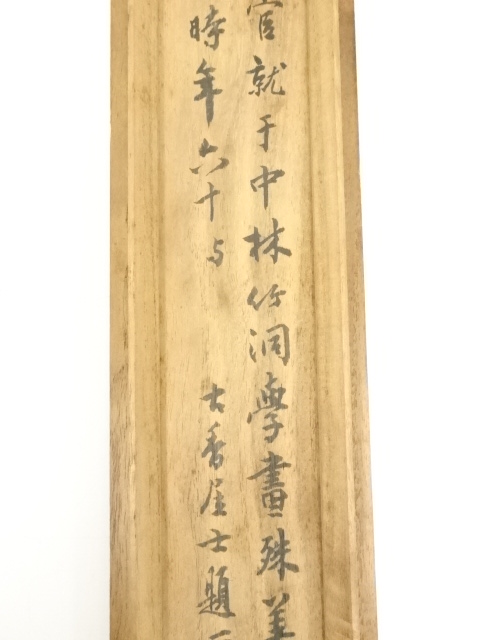 嘗就于中林竹洞學畫殊善
時年六十与 古香居士題